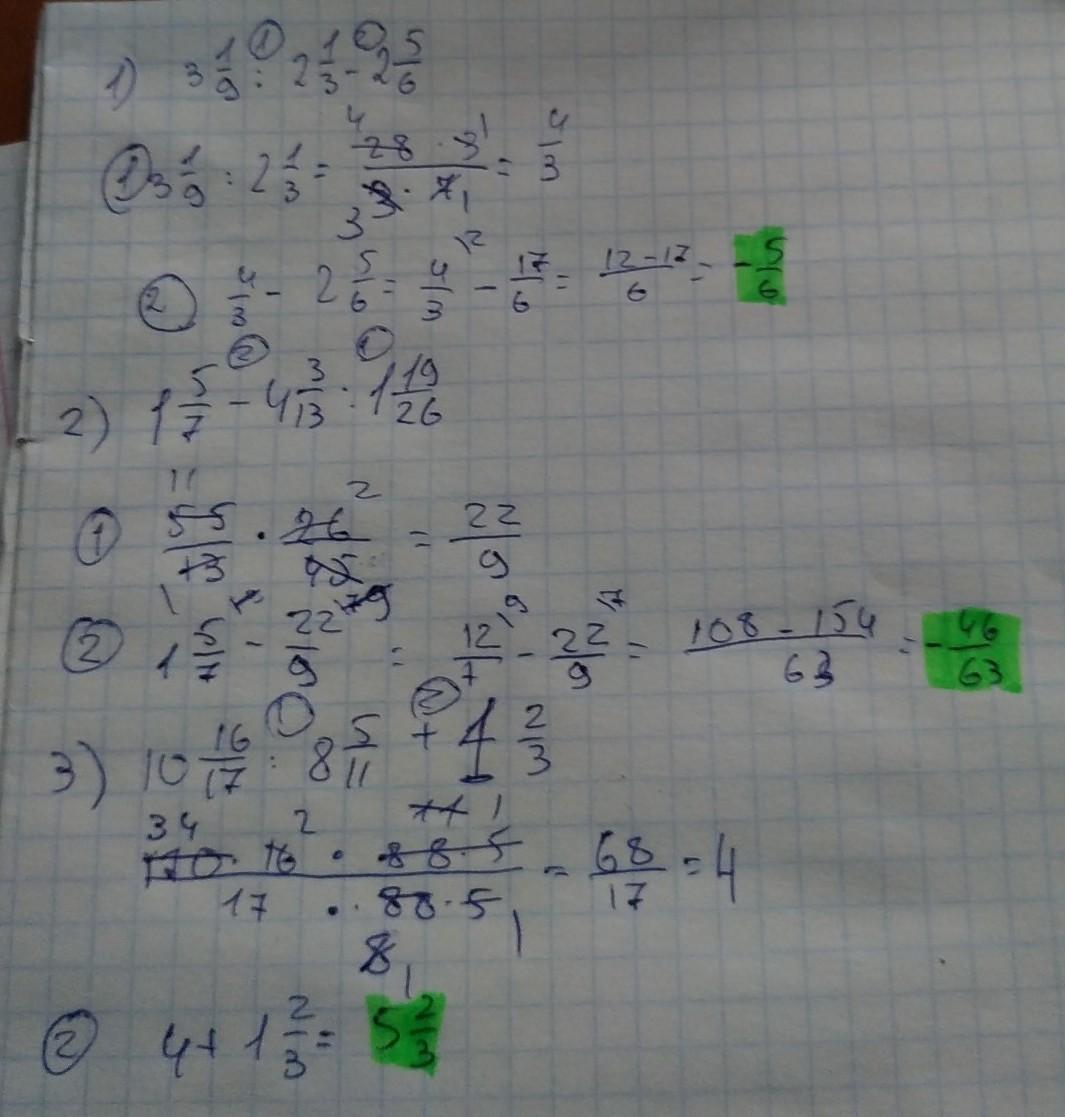 1) 3 1/9 : 2 1/3 - 2 5/6
① 3 1/9 : 2 1/3 = 28 · 3 / 9 · 7 = 4/3
② 4/3 - 2 5/6 = 4/3 \2 - 17/6 = 12 - 17 / 6 = - 5/6
2) 1 5/7 - ② 4 3/13 : ① 1 19/26
① 55/13 · 26/45 = 22/9
② 1 5/7 - 22/9 = 12/7 \9 - 22/9 \7 = 108 - 154 / 63 = - 46/63
3) 10 16/17 : ① 8 5/11 + ② 1 2/3
170 · 16 · 88 · 5 / 17 · 88 · 5 = 68/17 = 4
② 4 + 1 2/3 = 5 2/3